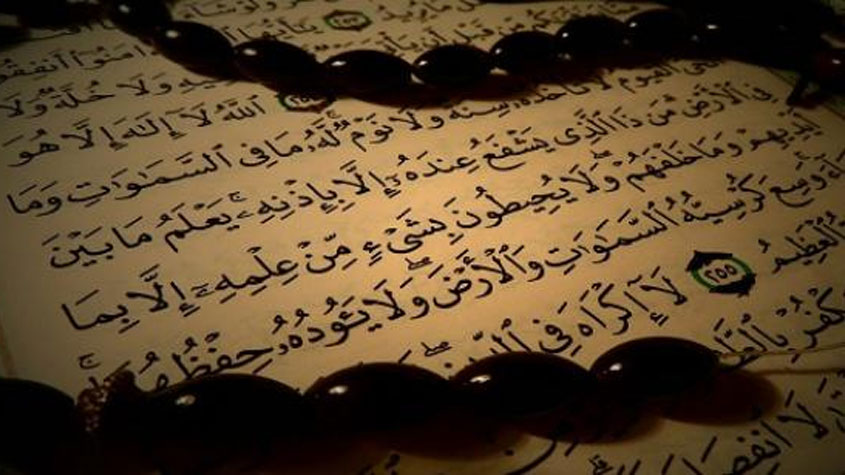 ٢٥٣ يَٰٓأَيُّهَا
ءَامَنُوٓا۟ أَنفِقُوا۟
وَلَا خُلَّةٌ وَلَا
ٱللَّهُ لَآ إِلَٰهَ إِلَّا هُوَ
ٱلْقَيُّومُ لَا تَأْخُذُهُۥ سِنَةٌ وَلَا نَوْمٌ لَّهُۥ مَا فِى ٱلسَّمَٰوَٰتِ وَمَا
فِى ٱلْأَرْضِ مَن ذَا ٱلَّذِى يَشْفَعُ عِندَهُۥٓ إِلَّا بِإِذْنِهِۦ يَعْلَمُ مَا بَيْنَ
أَيْدِيهِمْ وَمَا خَلْفَهُمْ وَلَا يُحِيطُونَ بِشَىْءٍ مِّنْ عِلْمِهِۦٓ إِلَّا بِمَا
وَسِعَ كُرْسِيُّهُ ٱلسَّمَٰوَٰتِ وَٱلْأَرْضَ وَلَا يَـُٔودُهُۥ حِفْظُهُمَا
ٱلْعَظِيمُ ٢٥٥ لَآ إِكْرَاهَ فِى
يَكْفُرْ بِٱلطَّٰغُوتِ
لَا ٱنفِصَامَ